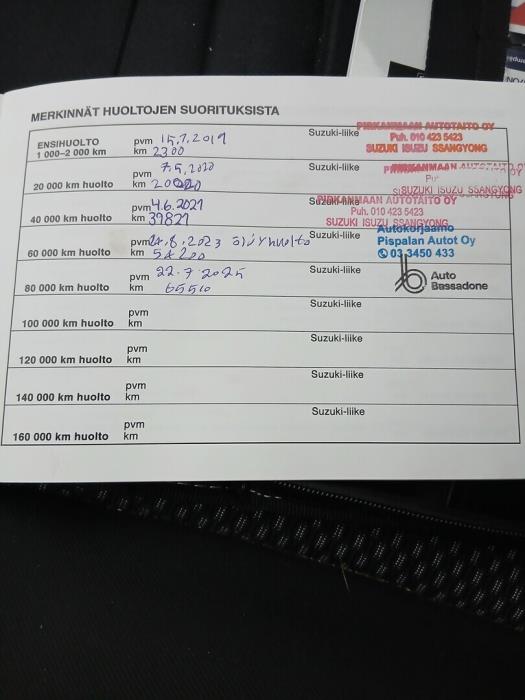 MERKINNÄT HUOLTOJEN SUORITUKSISTA
ENSIHUOLTO pvm 15.7.2019 Suzuki-liike PIRKANMAAN AUTOTAITO OY
Puh. 010 423 5423
1 000–2 000 km km 2300 SUZUKI ISUZU SSANGYONG
pvm 7.5.2020 Suzuki-liike PIRKANMAAN AUTOTAITO OY
20 000 km huolto km SUZUKI ISUZU SSANGYONG
pvm 4.6.2021 Suzuki-liike PIRKANMAAN AUTOTAITO OY
Puh. 010 423 5423
40 000 km huolto km 39827 SUZUKI ISUZU SSANGYONG
pvm 24.8.2023 öljynhuolto Suzuki-liike Autokorjaamo
Pispalan Autot Oy
60 000 km huolto km 54200 03 3450 433
pvm 22.7.2025 Suzuki-liike Auto
80 000 km huolto km 65510 Bassadone
pvm Suzuki-liike
100 000 km huolto km
pvm Suzuki-liike
120 000 km huolto km
pvm Suzuki-liike
140 000 km huolto km
pvm Suzuki-liike
160 000 km huolto km